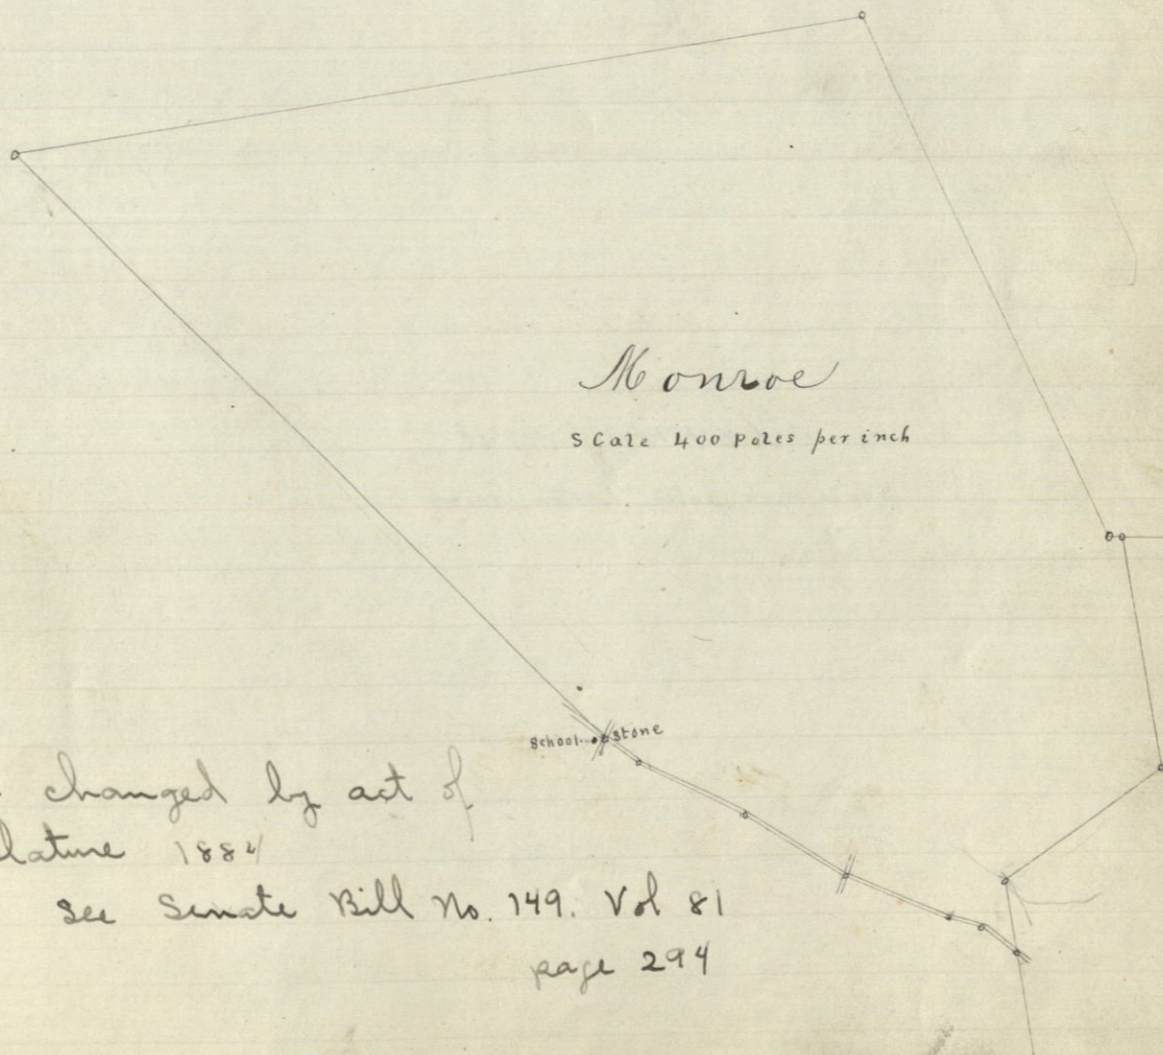 Monroe
SCale 400 Poles per inch
School stone
changed by act of
lature 1884
See Senate Bill No. 149. Vol 81
page 294